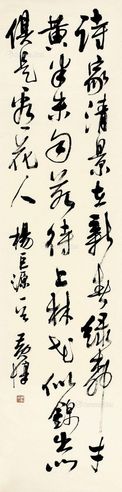 诗家清景在新春绿柳才
黄半未匀若待上林花似锦出门
俱是看花人 杨巨源一首